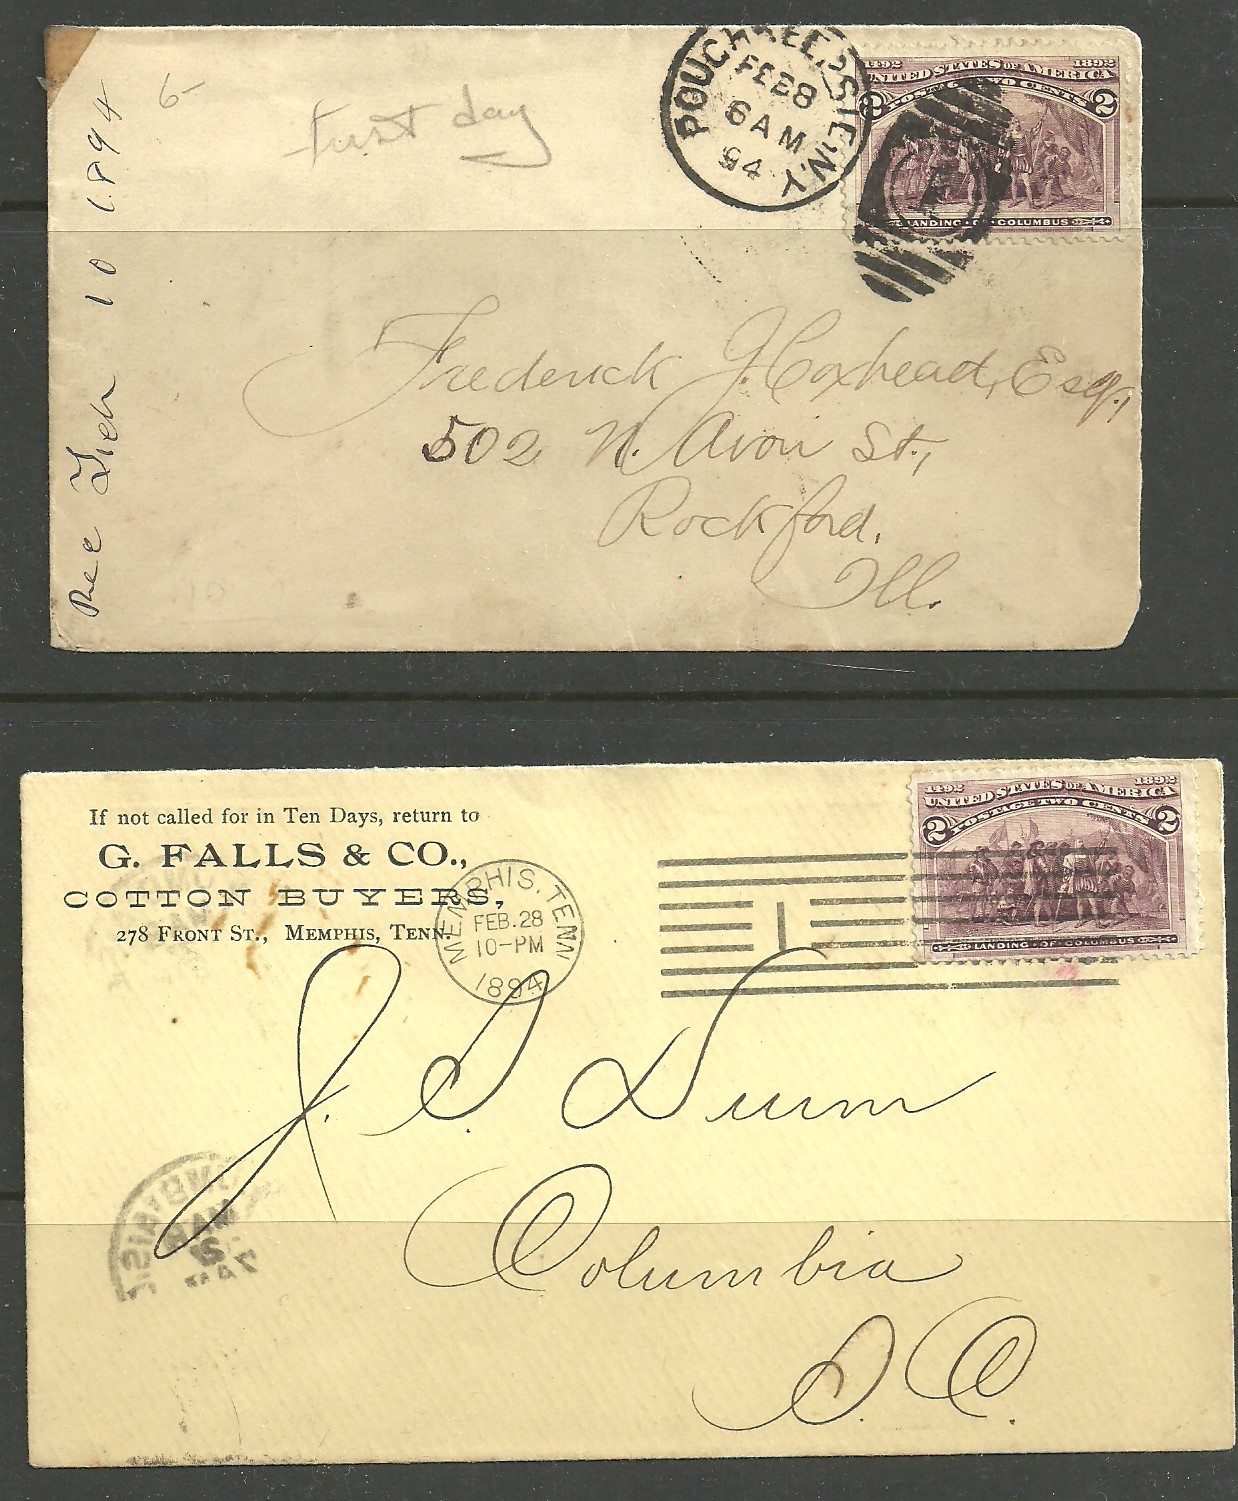 6-
First day
Rec Feb 10 1894
POUGHKEEPSIE, N.Y.
FEB 8
6 AM
94
1492 1892
UNITED STATES OF AMERICA
POSTAGE TWO CENTS
2 2
LANDING OF COLUMBUS
Frederick J. Coxhead, Esq.,
502 N. Avon St.,
Rockford,
Ill.
If not called for in Ten Days, return to
G. FALLS & CO.,
COTTON BUYERS,
278 FRONT ST., MEMPHIS, TENN.
MEMPHIS, TENN
FEB. 28
10-PM
1894
1
1492 1892
UNITED STATES OF AMERICA
POSTAGE TWO CENTS
2 2
LANDING OF COLUMBUS
J. S. Dunn
Columbia
S. C.